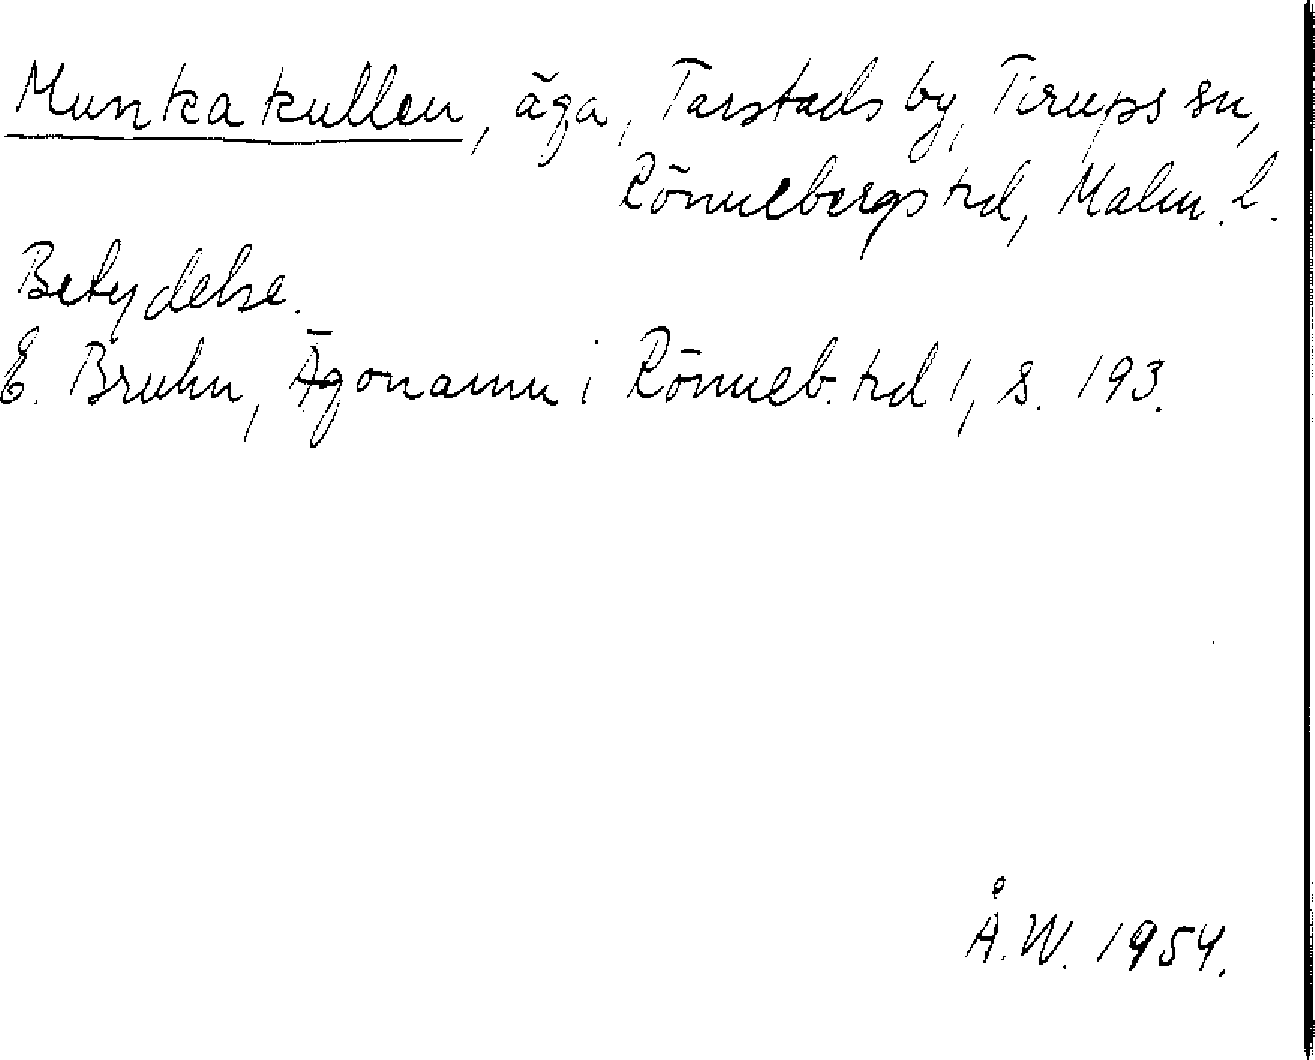 Munkakullen, äga, Tarstads by, Tirups sn,
Rönnebergs hd, Malm. l.
Betydelse.
E. Bruhn, Ägonamn i Rönneb. hd 1, s. 193.
Å.W. 1954.